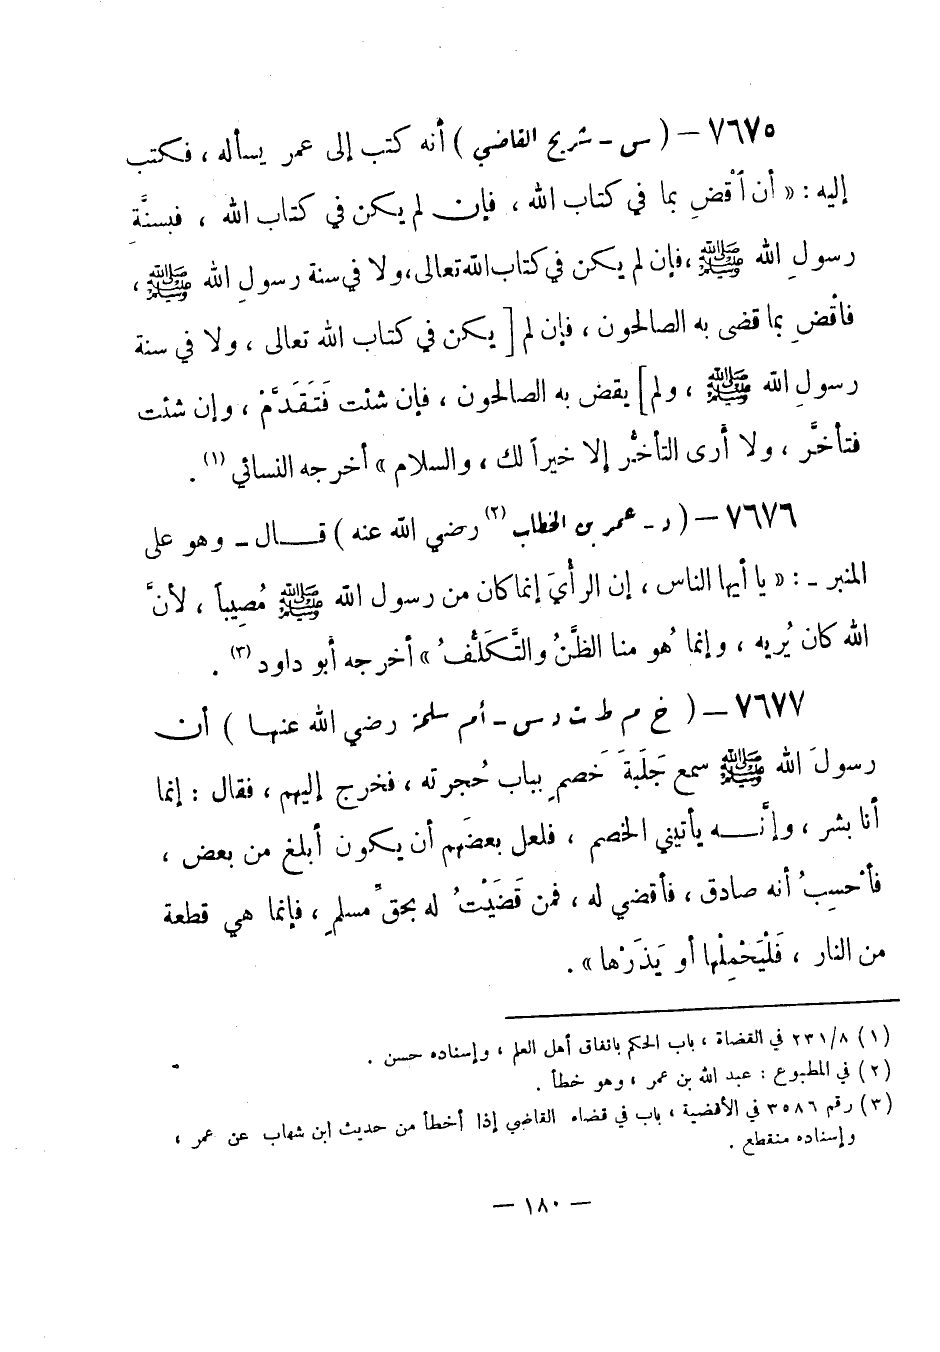 ٧٦٧٥ – ( س – شريح القاضي ) أنه كتب إلى عمر يسأله ، فكتب
إليه : « أن ٱقْضِ بما في كتاب الله ، فإن لم يكن في كتاب الله ، فبسنَّةِ
رسولِ الله ﷺ ،فإن لم يكن في كتاب الله تعالى،ولا في سنة رسولِ الله ﷺ ،
فاقْضِ بما قضى به الصالحون ، فإن لم [ يكن في كتاب الله تعالى ، ولا في سنة
رسولِ الله ﷺ ، ولم] يقض به الصالحون ، فإن شئت فَتَقَدَّمْ ، وإن شئت
فتأخَّر ، ولا أرى التأخُّر إلا خيراً لك ، والسلام » أخرجه النسائي (١) .
٧٦٧٦ – ( د – عمر بن الخطاب (٢) رضي الله عنه ) قـــال – وهو على
المنبر – : « يا أيها الناس ، إن الرأْيَ إنما كان من رسول الله ﷺ مُصِيباً ، لأنَّ
الله كان يُريه ، وإنما هُو منا الظَّنُ والتَّكَلُّفُ » أخرجه أبو داود (٣) .
٧٦٧٧ – ( خ م ط ت د س – أم سلمة رضي الله عنهـا ) أن
رسولَ الله ﷺ سمع جَلَبةَ خَصمٍ بباب حُجرته ، فخرج إليهم ، فقال : إنما
أنا بشر ، وإنَّـــه يأتيني الخصم ، فلعل بعضَهم أن يكون أبلغ من بعض ،
فأحسِبُ أنه صادق ، فأقضي له ، فمن قَضَيْتُ له بحقِّ مسلمٍ ، فإنما هي قطعة
من النار ، فَلْيَحْمِلْها أو يَذَرْها » .
(١) ٢٣١/٨ في القضاة ، باب الحكم باتفاق أهل العلم ، وإسناده حسن .
(٢) في المطبوع : عبد الله بن عمر ، وهو خطأ .
(٣) رقم ٣٥٨٦ في الأقضية ، باب في قضاء القاضي إذا أخطأ من حديث ابن شهاب عن عمر ،
وإسناده منقطع .
– ١٨٠ –